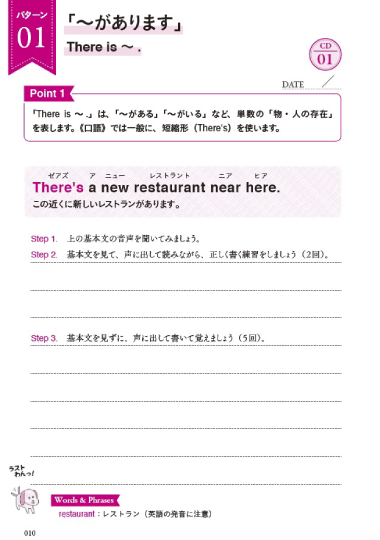 パターン
01
「～があります」
There is ～ .
CD
01
DATE
Point 1
「There is ～ .」は、「～がある」「～がいる」など、単数の「物・人の存在」
を表します。《口語》では一般に、短縮形（There's）を使います。
ゼアズ ア ニュー レストラント ニア ヒア
There's a new restaurant near here.
この近くに新しいレストランがあります。
Step 1. 上の基本文の音声を聞いてみましょう。
Step 2. 基本文を見て、声に出して読みながら、正しく書く練習をしましょう（2回）。
Step 3. 基本文を見ずに、声に出して書いて覚えましょう（5回）。
ラスト
わんっ!
Words & Phrases
restaurant：レストラン（英語の発音に注意）
010